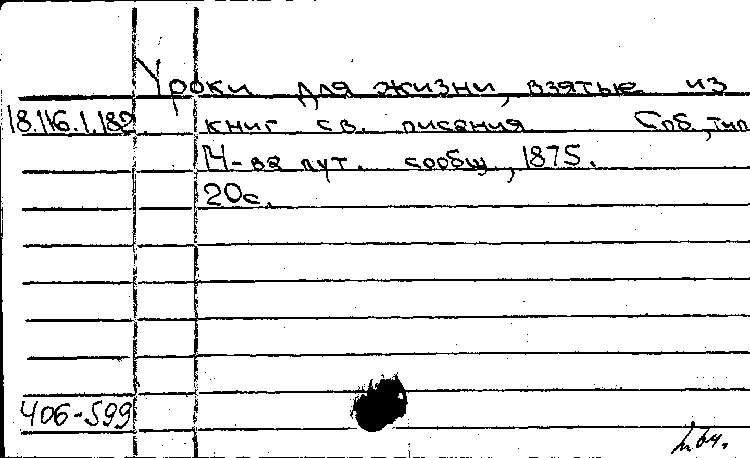 Уроки для жизни, взятые из
18.116.1.182 книг св. писания Спб, тип
М-ва пут. сообщ, 1875.
20с.
406-599